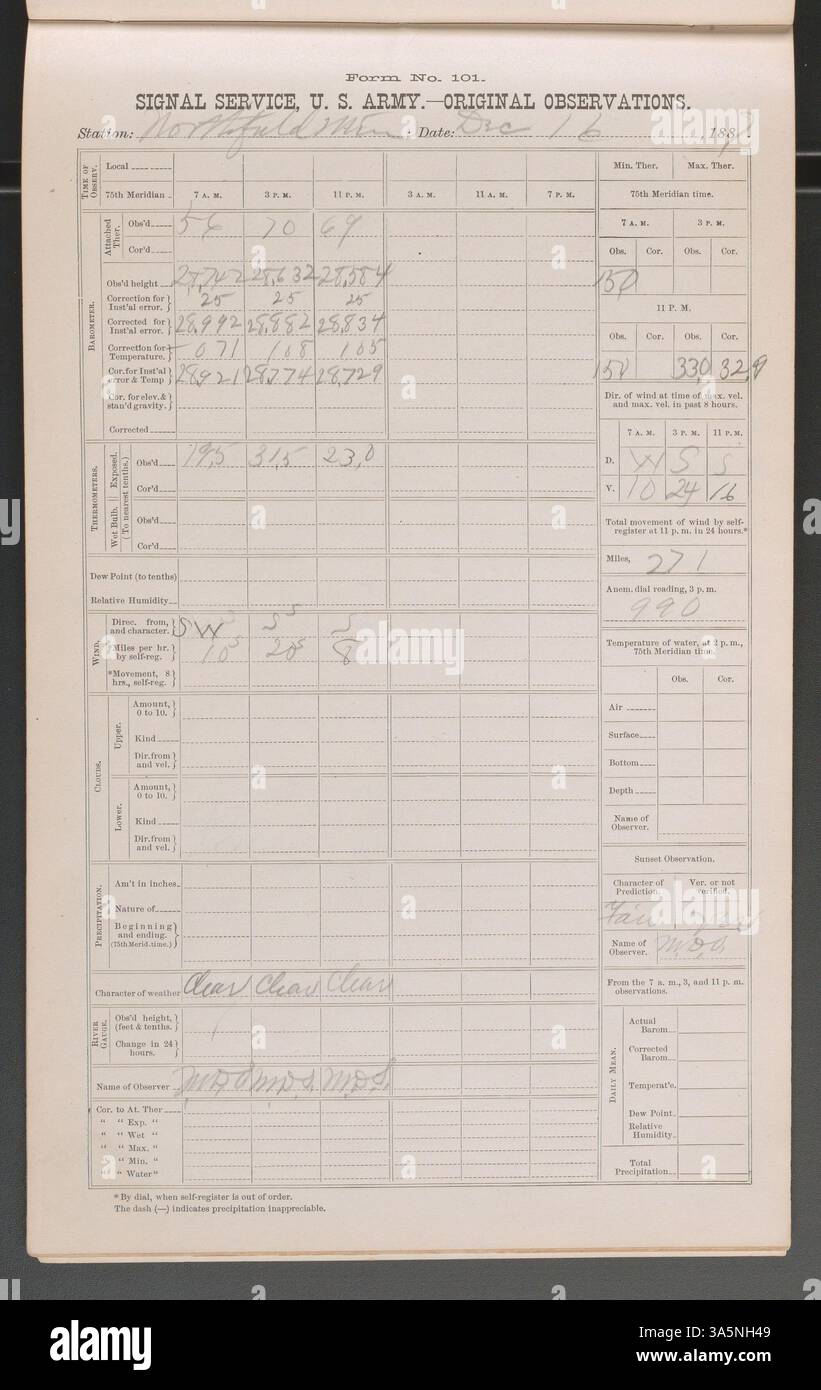 Form No. 101.
SIGNAL SERVICE, U. S. ARMY.—ORIGINAL OBSERVATIONS.
Station: Northfield Minn Date: Dec 16, 188
TIME OF OBSERV.
Local
75th Meridian 7 A. M. 3 P. M. 11 P. M. 3 A. M. 11 A. M. 7 P. M.
BAROMETER.
Attached Ther.
Obs'd 56 70 69
Cor'd
Obs'd height 28,742 28,632 28,584
Correction for Inst'al error. 25 25 25
Corrected for Inst'al error. 28,992 28,882 28,834
Correction for Temperature. - 071 108 105
Cor. for Inst'al error & Temp 28,921 28,774 28,729
Cor. for elev. & stan'd gravity.
Corrected
THERMOMETERS.
(To nearest tenths.)
Exposed.
Obs'd 19,5 31,5 23,0
Cor'd
Wet Bulb.
Obs'd
Cor'd
Dew Point (to tenths)
Relative Humidity
WIND.
Direc. from, and character. SW S S S S
Miles per hr. by self-reg. 10 20 8
*Movement, 8 hrs., self-reg.
CLOUDS.
Upper.
Amount, 0 to 10.
Kind
Dir. from and vel.
Lower.
Amount, 0 to 10.
Kind
Dir. from and vel.
PRECIPITATION.
Am't in inches
Nature of
Beginning and ending. (75th Merid. time.)
Character of weather Clear Clear Clear
RIVER GAUGE.
Obs'd height, (feet & tenths.)
Change in 24 hours.
Name of Observer M.D.S. M.D.S. M.D.S.
Cor. to At. Ther
" " Exp. "
" " Wet "
" " Max. "
" " Min. "
" " Water "
*By dial, when self-register is out of order.
The dash (—) indicates precipitation inappreciable.
Min. Ther. Max. Ther.
75th Meridian time.
7 A. M. 3 P. M.
Obs. Cor. Obs. Cor.
150
11 P. M.
Obs. Cor. Obs. Cor.
150 33,0 32,9
Dir. of wind at time of max. vel. and max. vel. in past 8 hours.
7 A. M. 3 P. M. 11 P. M.
D. S S
V. 10 24 16
Total movement of wind by self-register at 11 p. m. in 24 hours.*
Miles, 271
Anem. dial reading, 3 p.m.
990
Temperature of water, at 2 p. m., 75th Meridian time.
Obs. Cor.
Air
Surface
Bottom
Depth
Name of Observer.
Sunset Observation.
Character of Prediction. Ver. or not verified.
Fair
Name of Observer. M.D.S.
From the 7 a. m., 3, and 11 p. m. observations.
DAILY MEAN.
Actual Barom.
Corrected Barom.
Temperat'e.
Dew Point
Relative Humidity
Total Precipitation
alamy
Image ID: 3A5NH49
www.alamy.com